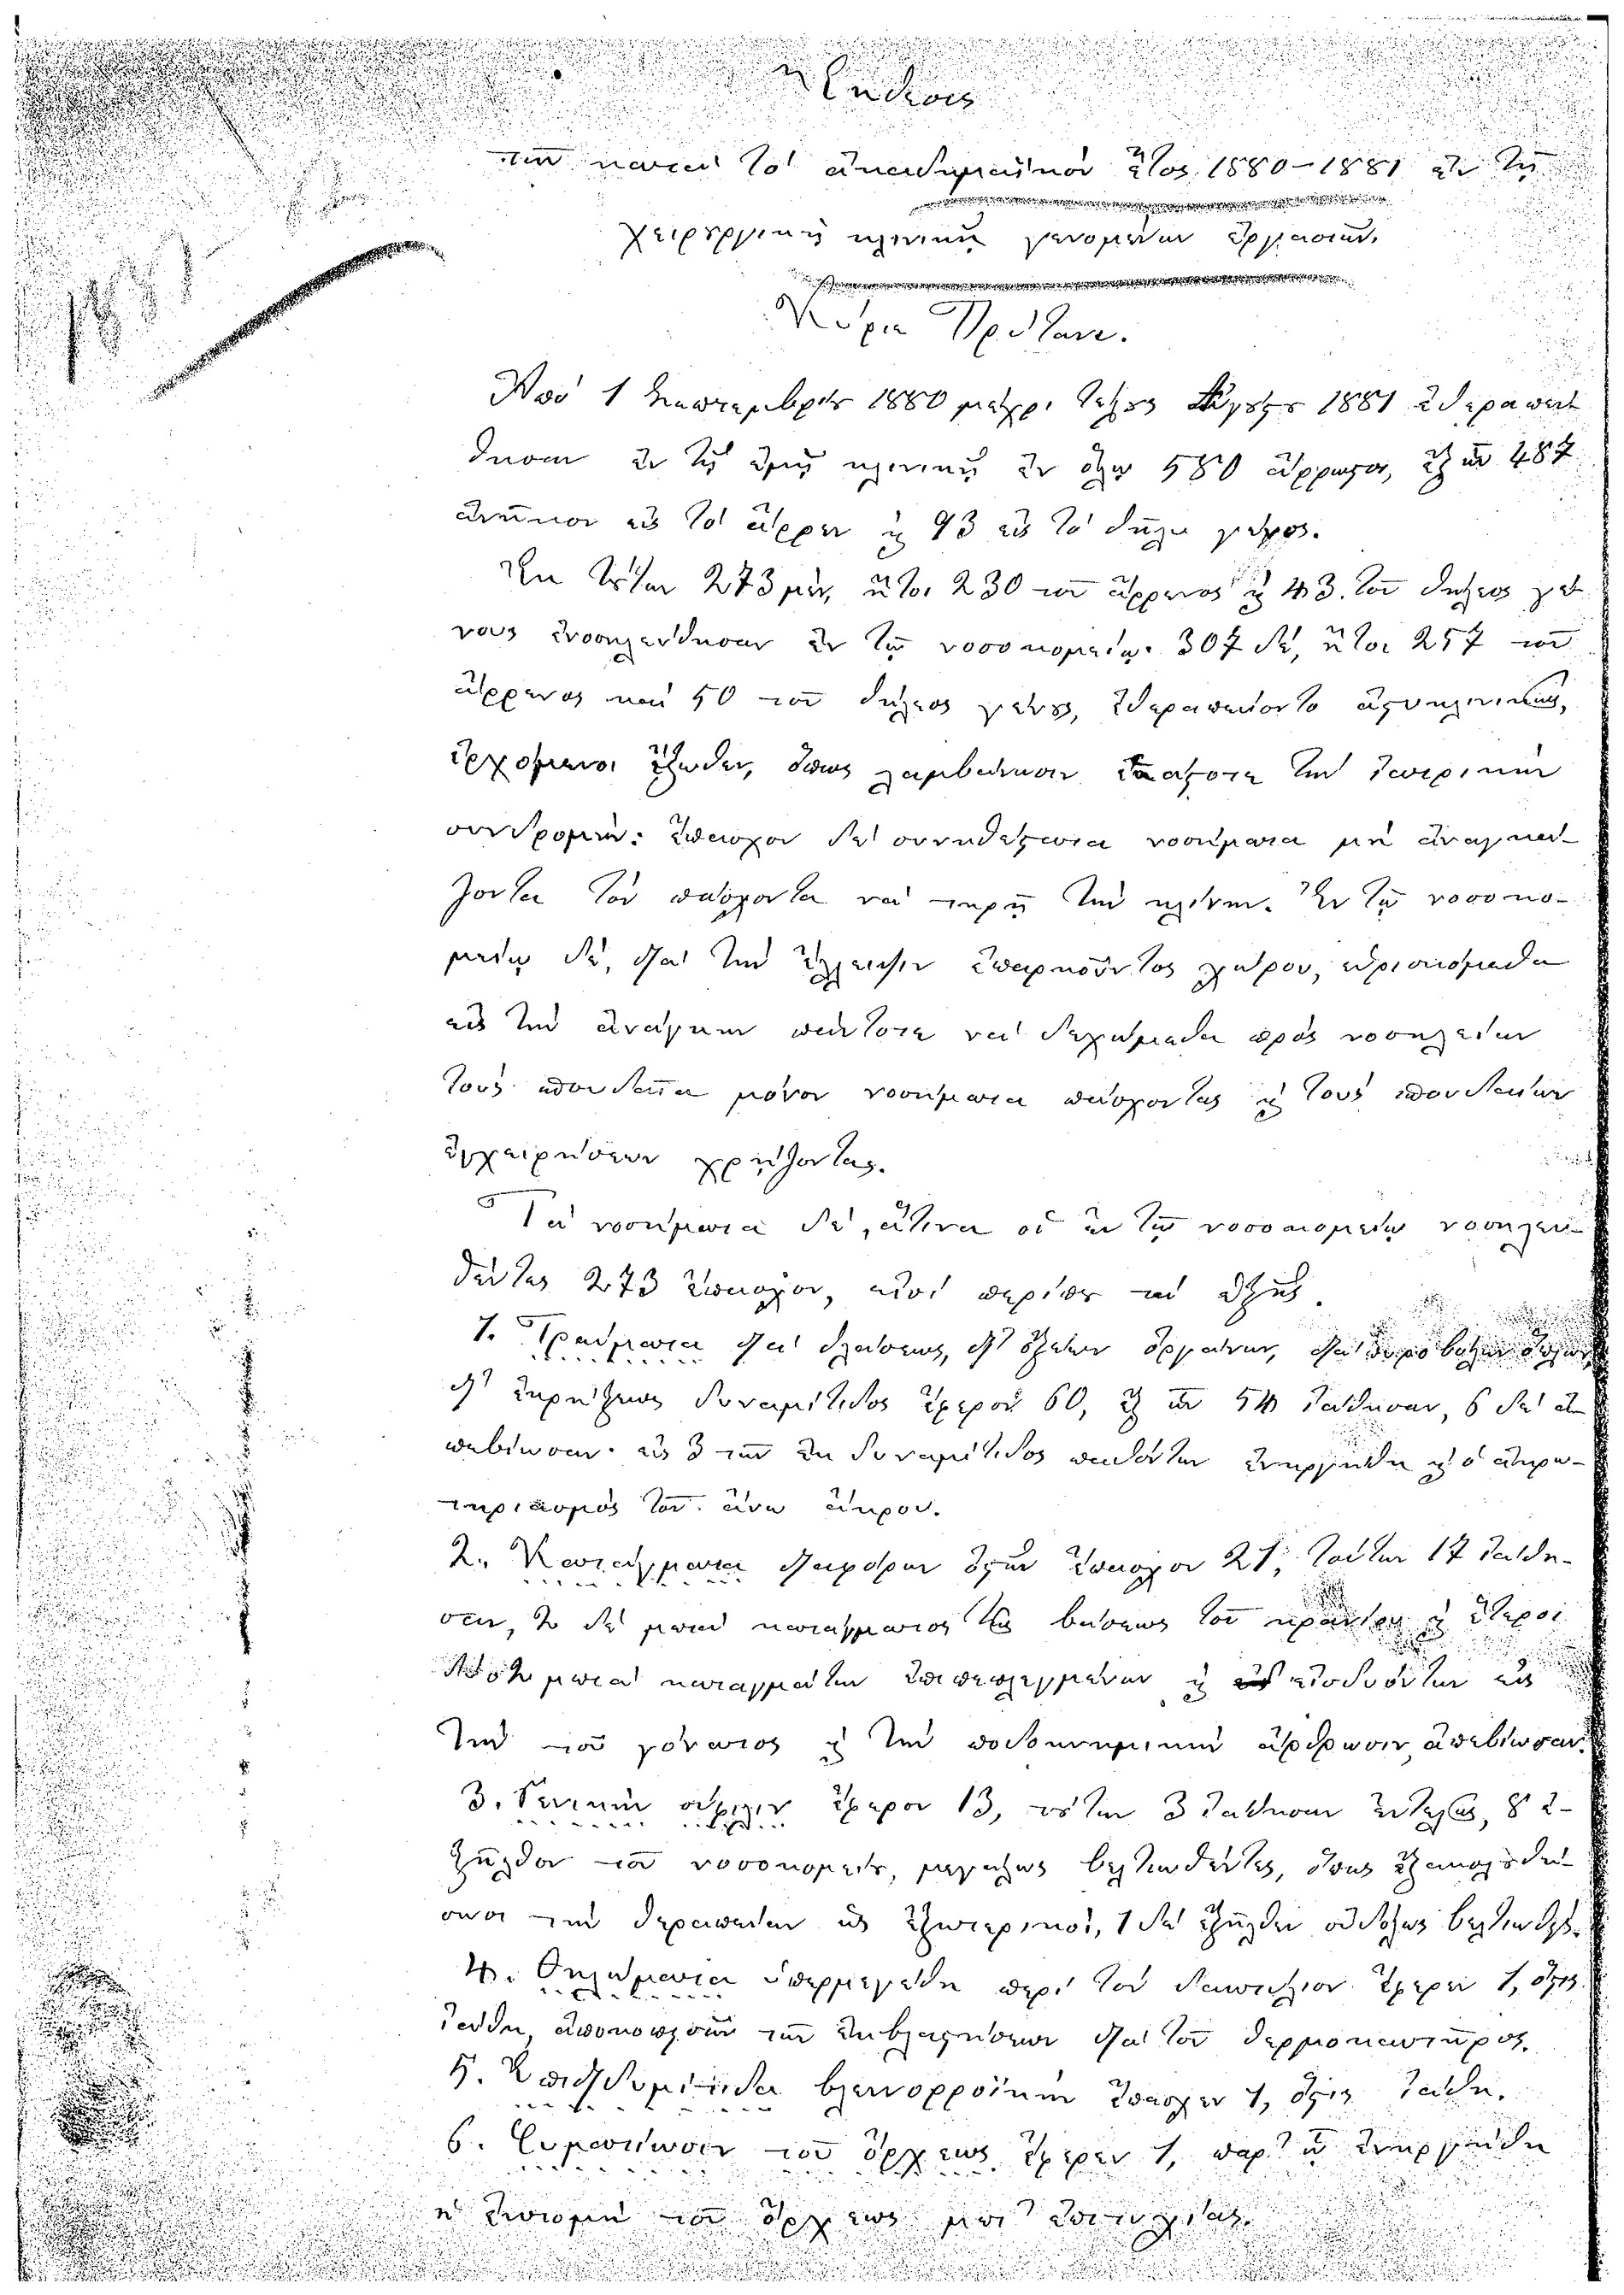 Ἔκθεσις
τῶν κατὰ τὸ ἀκαδημαϊκὸν ἔτος 1880–1881 ἐν τῇ
χειρουργικῇ κλινικῇ γενομένων ἐργασιῶν.
Κύριε Πρύτανι.
Ἀπὸ 1 Σεπτεμβρίου 1880 μέχρι τέλους Αὐγούστου 1881 ἐθεραπεύ-
θησαν ἐν τῇ ἐμῇ κλινικῇ ἐν ὅλῳ 580 ἄρρωστοι, ἐξ ὧν 487
ἀνῆκον εἰς τὸ ἄρρεν καὶ 93 εἰς τὸ θῆλυ γένος.
Ἐκ τούτων 273 μὲν, ἤτοι 230 τοῦ ἄρρενος καὶ 43 τοῦ θήλεος γέ-
νους ἐνοσηλεύθησαν ἐν τῷ νοσοκομείῳ· 307 δὲ, ἤτοι 257 τοῦ
ἄρρενος καὶ 50 τοῦ θήλεος γένους, ἐθεραπεύοντο ἀστυκλινικῶς,
ἐρχόμενοι ἔξωθεν, ὅπως λαμβάνωσιν ἑκάστοτε τὴν ἰατρικὴν
συνδρομήν· ἔπασχον δὲ συνηθέστατα νοσήματα μὴ ἀναγκά-
ζοντα τὸν πάσχοντα νὰ τηρῇ τὴν κλίνην. Ἐν τῷ νοσοκο-
μείῳ δὲ, διὰ τὴν ἔλλειψιν ἐπαρκοῦντος χώρου, εὑρισκόμεθα
εἰς τὴν ἀνάγκην πάντοτε νὰ δεχώμεθα πρὸς νοσηλείαν
τοὺς σπουδαῖα μόνον νοσήματα πάσχοντας καὶ τοὺς σπουδαίων
ἐγχειρήσεων χρῄζοντας.
Τὰ νοσήματα δὲ, ἅτινα οἱ ἐν τῷ νοσοκομείῳ νοσηλευ-
θέντες 273 ἔπασχον, εἰσὶ περίπου τὰ ἑξῆς.
1. Τραύματα διὰ θλάσεως, δι' ὀξέων ὀργάνων, διὰ πυροβόλων ὅπλων
δι' ἐκρήξεως δυναμίτιδος ἔφερον 60, ἐξ ὧν 54 ἰάθησαν, 6 δὲ ἀ-
πεβίωσαν· εἰς 3 τῶν ἐκ δυναμίτιδος παθόντων ἐνηργήθη καὶ ὁ ἀκρω-
τηριασμὸς τοῦ ἄνω ἄκρου.
2. Κατάγματα διαφόρων ὀστῶν ἔπασχον 21, τούτων 17 ἰάθη-
σαν, 2 δὲ μετὰ κατάγματος τῆς βάσεως τοῦ κρανίου καὶ ἕτεροι
δύο μετὰ καταγμάτων ἐπιπεπλεγμένων καὶ εἰσδυόντων εἰς
τὴν τοῦ γόνατος καὶ τὴν ποδοκνημικὴν ἄρθρωσιν, ἀπεβίωσαν.
3. Γενικὴν σύφιλιν ἔφερον 13, τούτων 3 ἰάθησαν ἐντελῶς, 8 ἐ-
ξῆλθον τοῦ νοσοκομείου, μεγάλως βελτιωθέντες, ὅπως ἐξακολουθή-
σωσι τὴν θεραπείαν ὡς ἐξωτερικοὶ, 1 δὲ ἐξῆλθεν οὐδόλως βελτιωθείς.
4. Θηλώματα ὑπερμεγέθη περὶ τὸν δακτύλιον ἔφερεν 1, ὅστις
ἰάθη, ἀποκοπεισῶν τῶν ἐκβλαστήσεων διὰ τοῦ θερμοκαυτῆρος.
5. Ἐπιδιδυμίτιδα βλεννορροϊκὴν ἔπασχεν 1, ὅστις ἰάθη.
6. Συμπύωσιν τοῦ ὄρχεως ἔφερεν 1, παρ' ᾧ ἐνηργήθη
ἡ ἐκτομὴ τοῦ ὄρχεως μετ' ἐπιτυχίας.